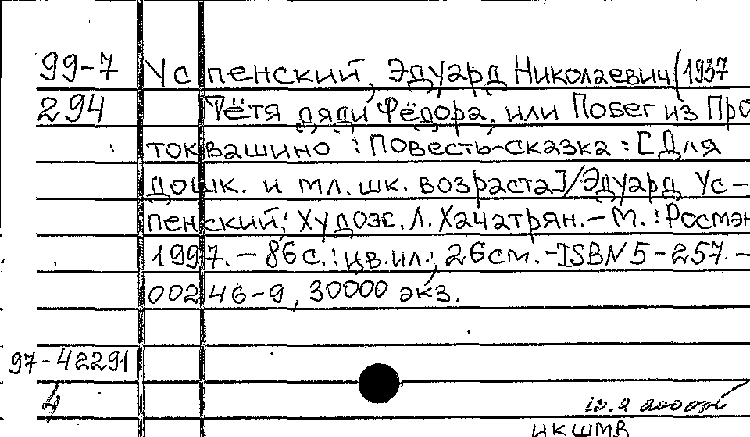 99-7 Успенский, Эдуард Николаевич (1937
294 Тётя дяди Фёдора, или Побег из Про
токвашино : Повесть-сказка : [Для
дошк. и мл. шк. возраста] / Эдуард Ус-
пенский; Худож. Л. Хачатрян. - М. : Росмэн
1997. - 86 с. : цв. ил.; 26 см. - ISBN 5-257-
00246-9, 30000 экз.
97-42291
4
НКШМВ